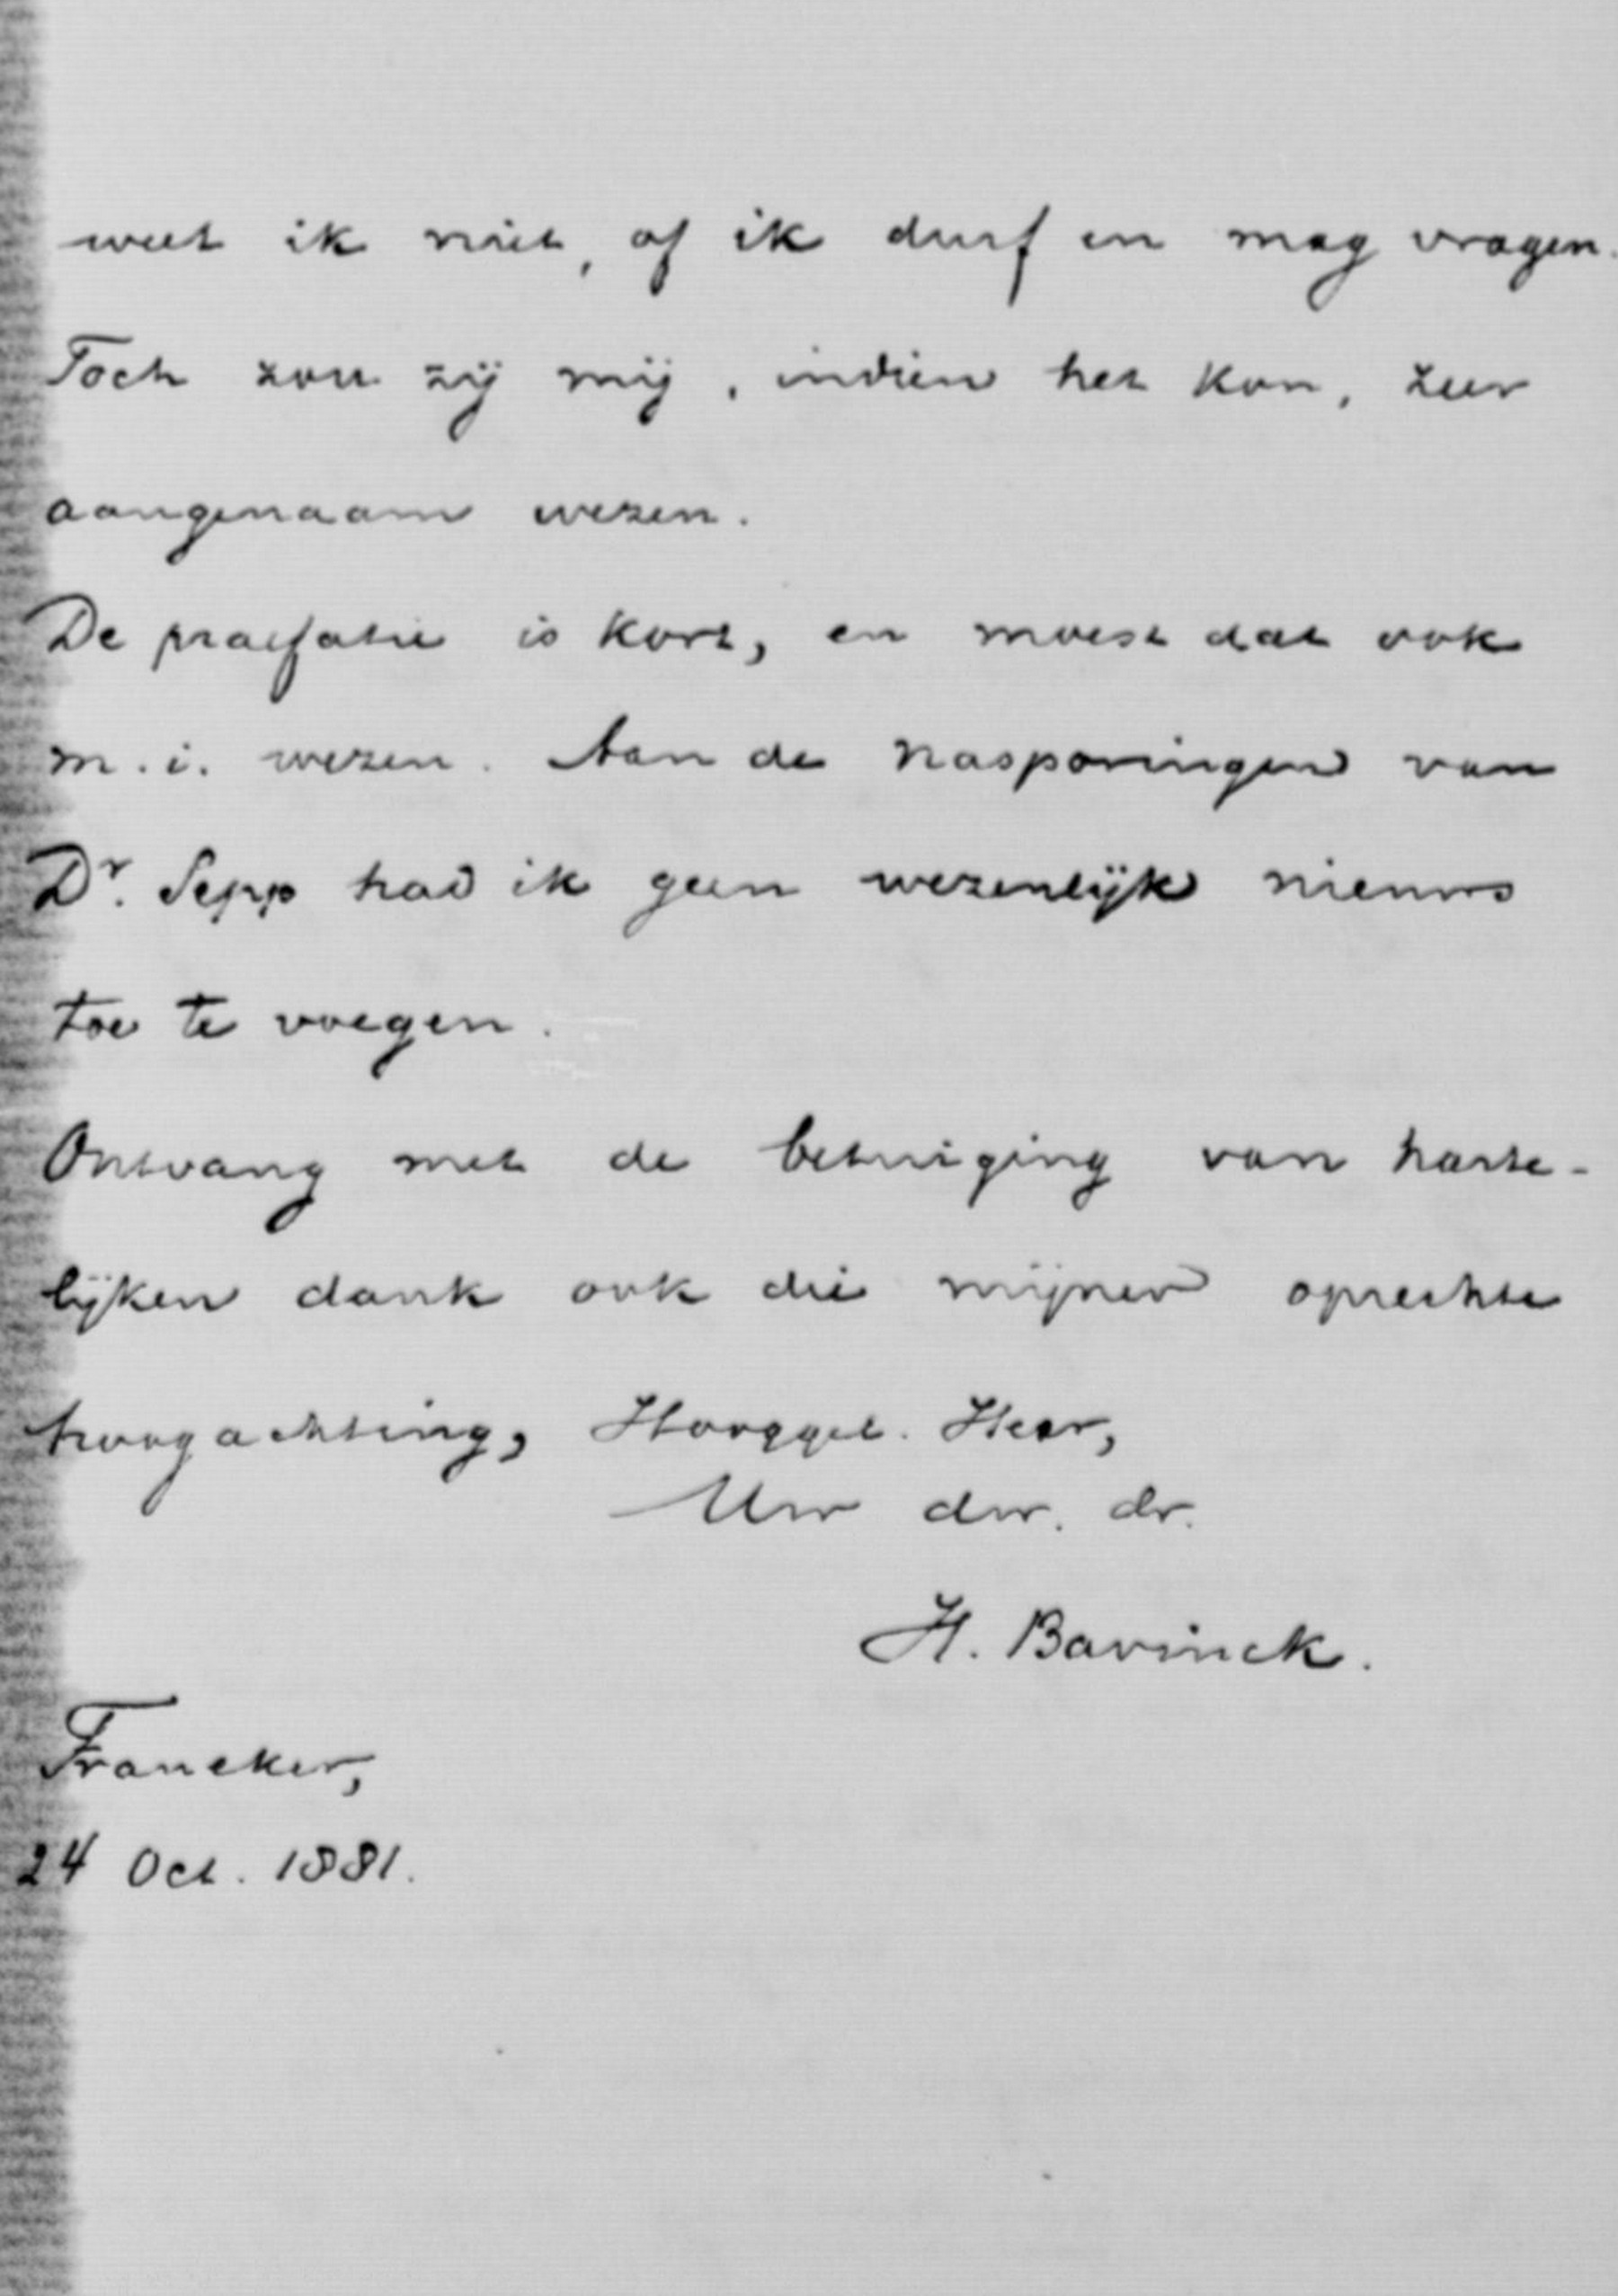 weet ik niet, of ik durf en mag vragen.
Toch zou zij mij, indien het kon, zeer
aangenaam wezen.
De praefatie is kort, en moest dat ook
m.i. wezen. Aan de nasporingen van
Dr. Sepp had ik geen wezenlijk nieuws
toe te voegen.
Ontvang met de betuiging van harte-
lijken dank ook die mijner oprechte
hoogachting, Hooggel. Heer,
Uw dw. dr.
H. Bavinck.
Franeker,
24 Oct. 1881.